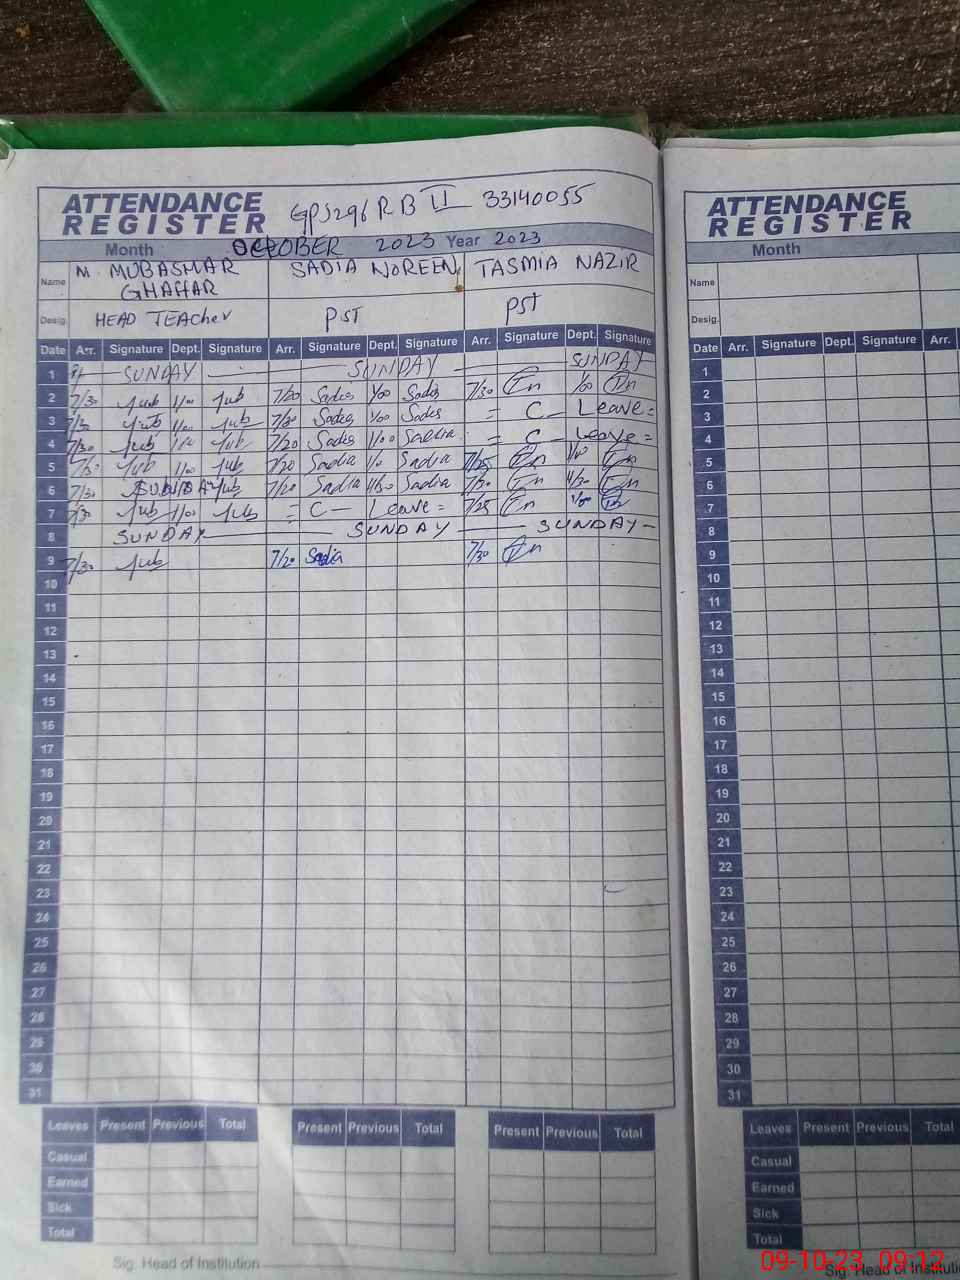 ATTENDANCE REGISTER GPS 296 RB II 33140055
Month OCTOBER 2023 Year 2023
Name M. MUBASHAR GHAFFAR SADIA NOREEN TASMIA NAZIR
Desig. HEAD TEAcher PST PST
Date Arr. Signature Dept. Signature Arr. Signature Dept. Signature Arr. Signature Dept. Signature
1 SUNDAY SUNDAY SUNDAY
2 7/30 1/00 7/20 Sadia 1/00 Sadia 7/30 1/00
3 7/30 1/00 7/20 Sadia 1/00 Sadia = C - Leave =
4 7/30 1/00 7/20 Sadia 1/00 Sadia = C - Leave =
5 7/30 1/00 7/20 Sadia Sadia 7/25
6 7/30 7/20 Sadia Sadia 7/30
7 7/30 1/00 = C - Leave = 7/25 1/00
8 SUNDAY SUNDAY SUNDAY
9 7/30 7/20 Sadia 7/30
10
11
12
13
14
15
16
17
18
19
20
21
22
23
24
25
26
27
28
29
30
31
Leaves Present Previous Total Present Previous Total Present Previous Total
Casual
Earned
Sick
Total
Sig. Head of Institution
ATTENDANCE REGISTER
Month
Name
Desig.
Date Arr. Signature Dept. Signature Arr.
1
2
3
4
5
6
7
8
9
10
11
12
13
14
15
16
17
18
19
20
21
22
23
24
25
26
27
28
29
30
31
Leaves Present Previous Total
Casual
Earned
Sick
Total
Sig. Head of Institution
09-10-23 09:12